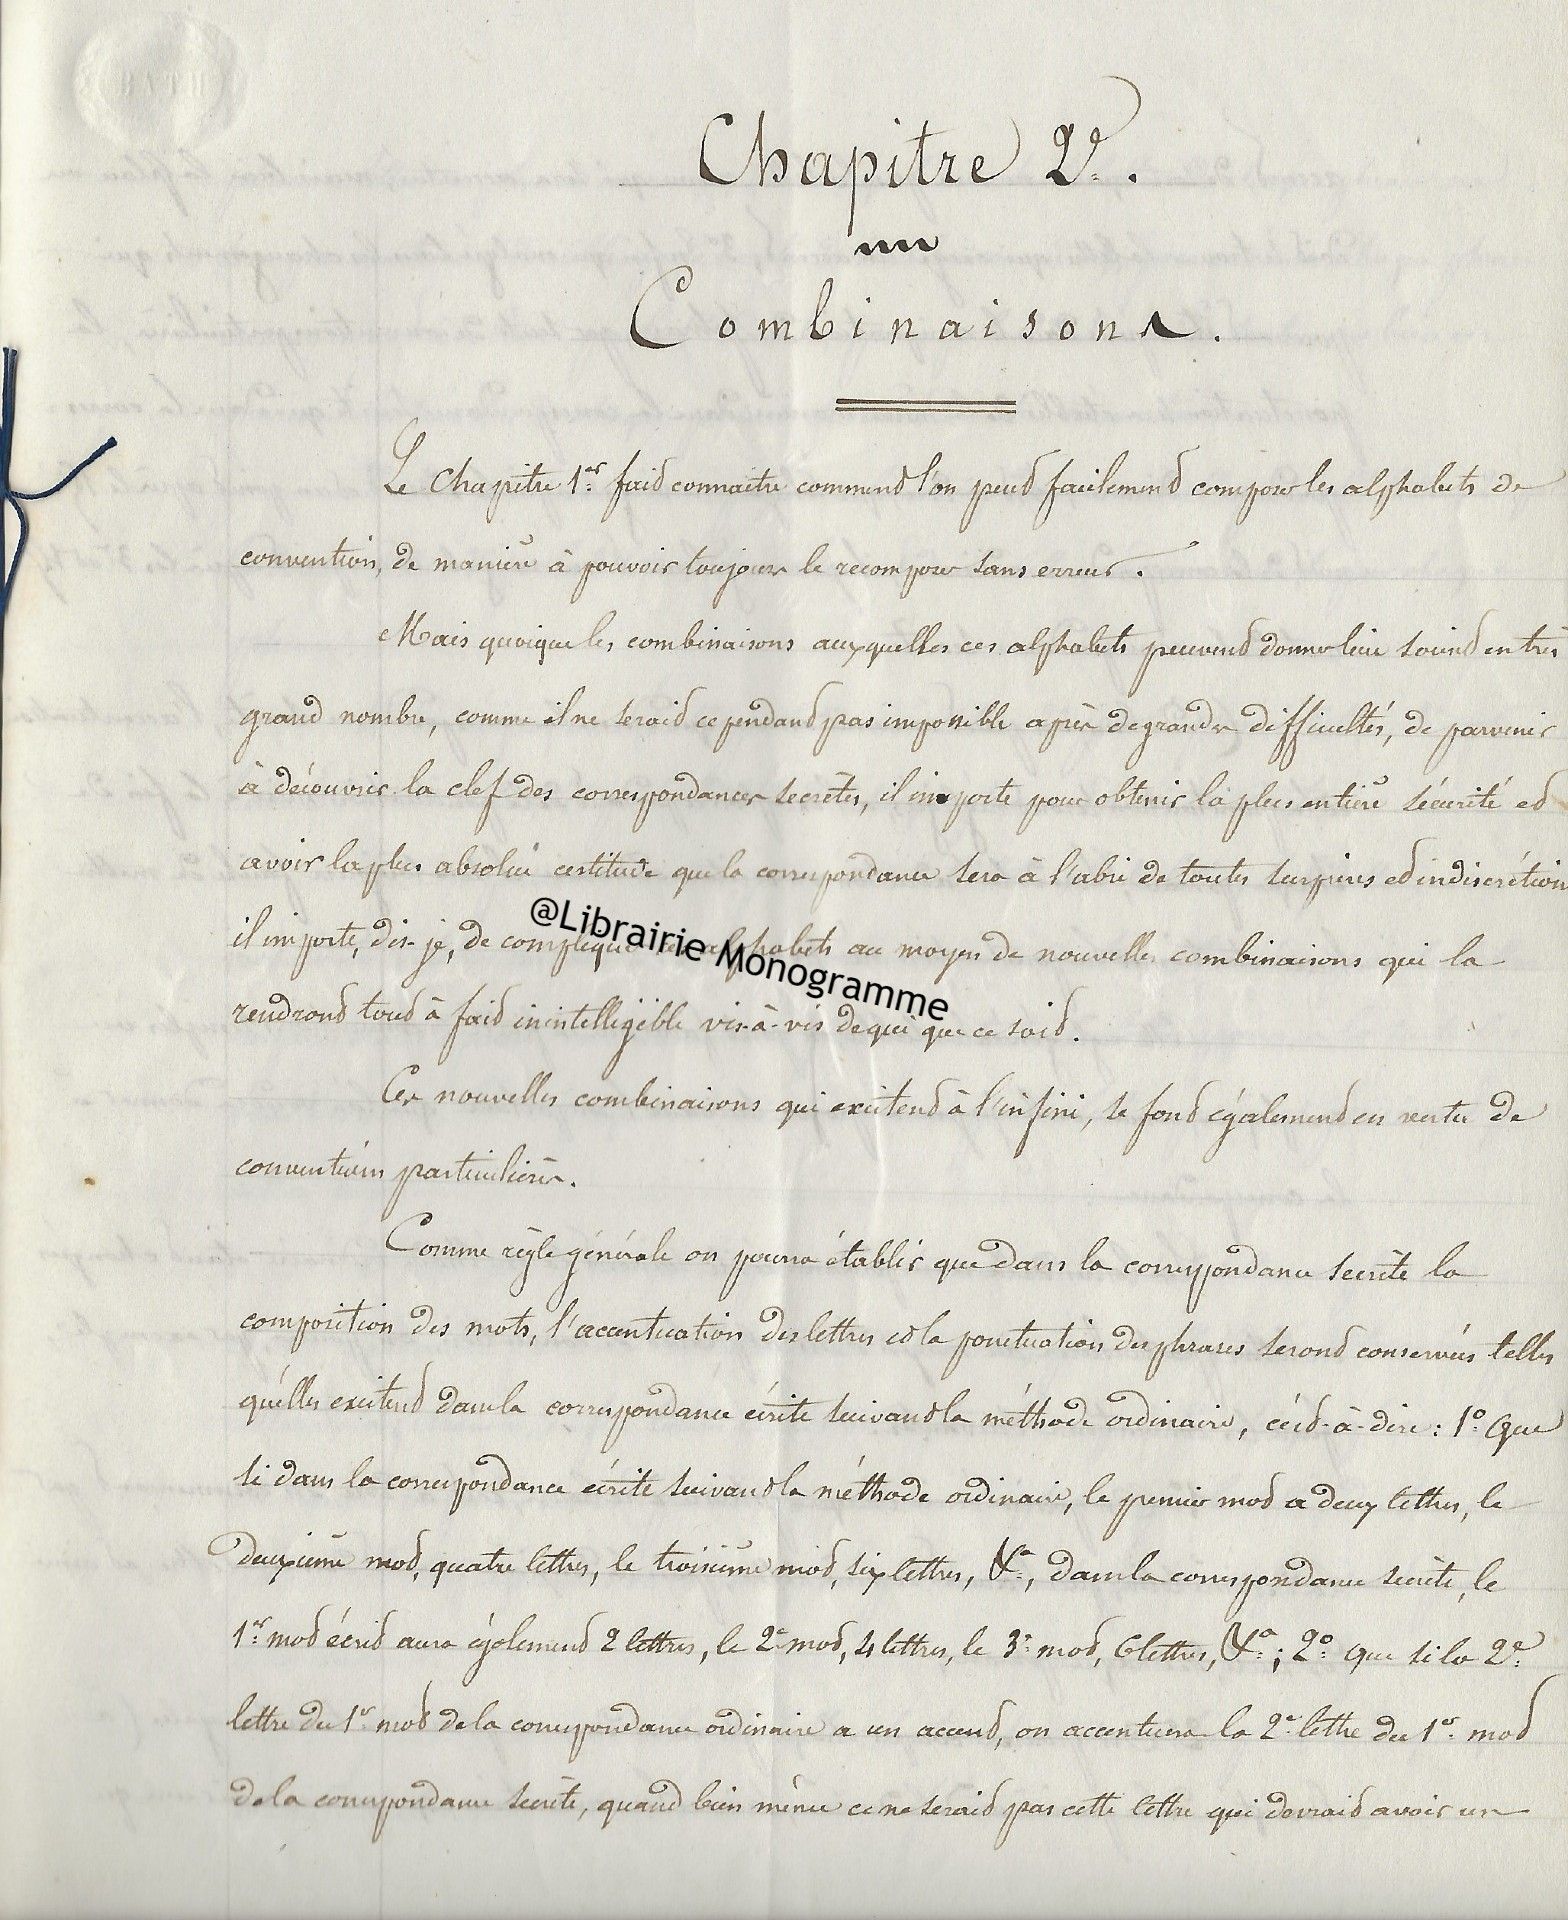 Chapitre 2e.
Combinaisons.
Le Chapitre 1er fait connaître comment l'on peut facilement composer les alphabets de
convention, de manière à pouvoir toujours le recomposer sans erreur.
Mais quoique les combinaisons auxquelles ces alphabets peuvent donner lieu soient en très
grand nombre, comme il ne serait cependant pas impossible après de grandes difficultés, de parvenir
à découvrir la clef des correspondances secrètes, il importe pour obtenir la plus entière sécurité et
avoir la plus absolue certitude que la correspondance sera à l'abri de toutes surprises et indiscrétion
il importe, dis-je, de compliquer ces alphabets au moyen de nouvelles combinaisons qui la
rendront tout à fait inintelligible vis-à-vis de qui que ce soit.
Ces nouvelles combinaisons qui existent à l'infini, se font également en vertu de
conventions particulières.
Comme règle générale on pourra établir que dans la correspondance secrète la
composition des mots, l'accentuation des lettres et la ponctuation des phrases seront conservées telles
qu'elles existent dans la correspondance écrite suivant la méthode ordinaire, c'est-à-dire : 1o Que
si dans la correspondance écrite suivant la méthode ordinaire, le premier mot a deux lettres, le
deuxième mot, quatre lettres, le troisième mot, six lettres, &a, dans la correspondance secrète, le
1er mot écrit aura également 2 lettres, le 2e mot, 4 lettres, le 3e mot, 6 lettres, &a ; 2o que si la 2e
lettre du 1er mot de la correspondance ordinaire a un accent, on accentuera la 2e lettre du 1er mot
de la correspondance secrète, quand bien même ce ne serait pas cette lettre qui devrait avoir un
@Librairie Monogramme